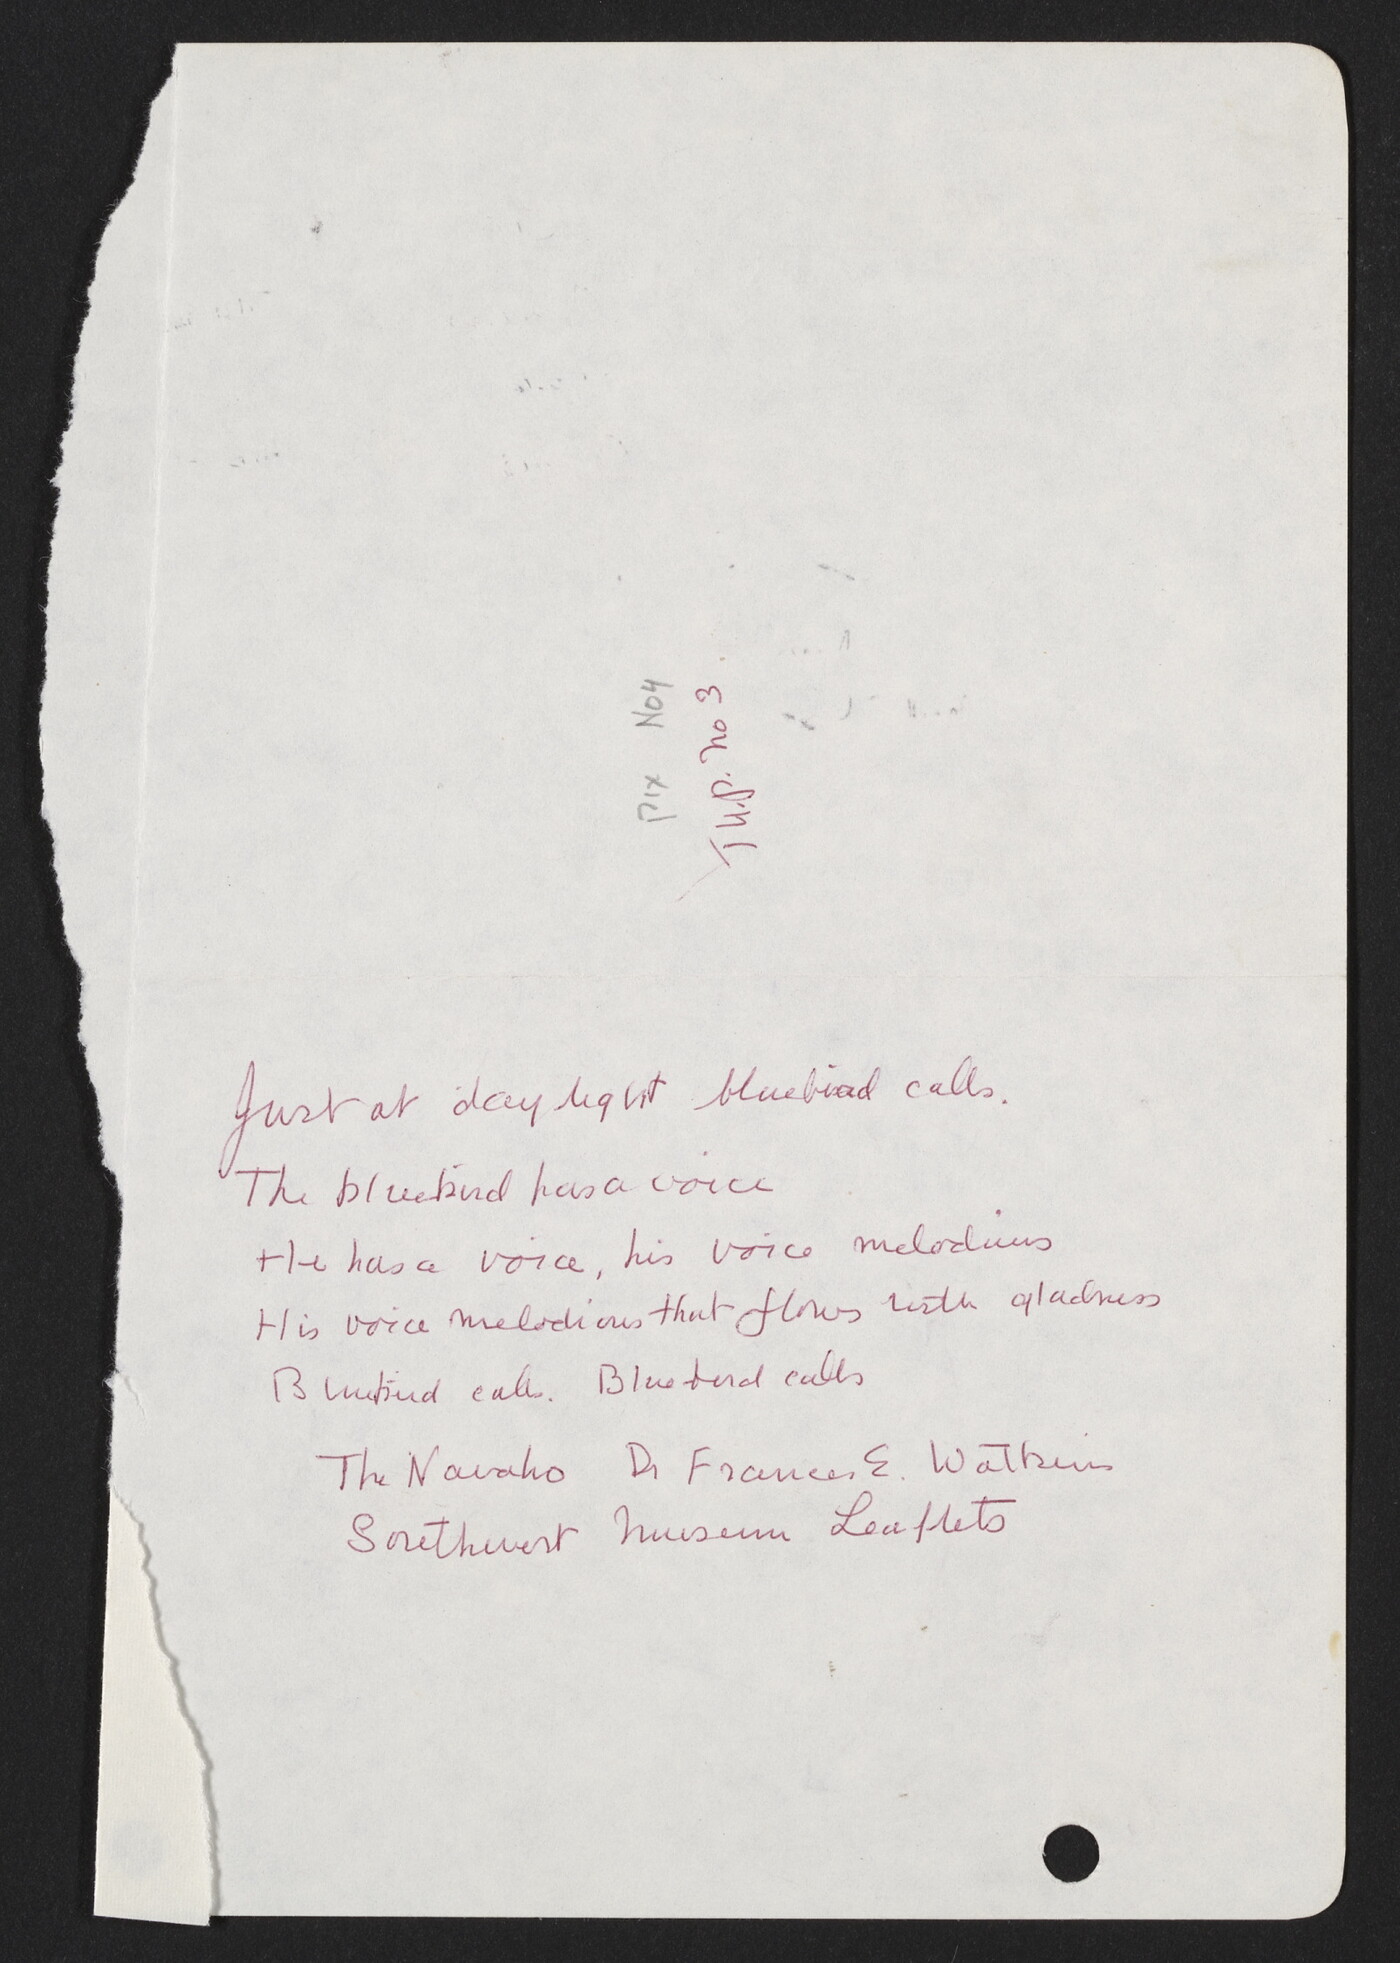 Pix No4
T.U.P. no 3
Just at daylight bluebird calls.
The bluebird has a voice
He has a voice, his voice melodious
His voice melodious that flows with gladness
Bluebird calls. Bluebird calls
The Navaho Dr Frances E. Watkins
Southwest Museum Leaflets